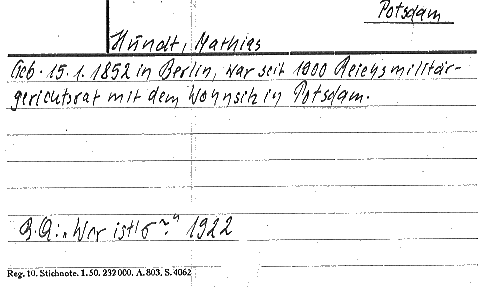 Potsdam
Hundt, Mathias
Geb. 15.1.1852 in Berlin, war seit 1900 Reichsmilitär-
gerichtsrat mit dem Wohnsitz in Potsdam.
"Wer ist's?" 1922
Reg. 10. Stichnote. 1. 50. 232 000. A. 803. S. 4062